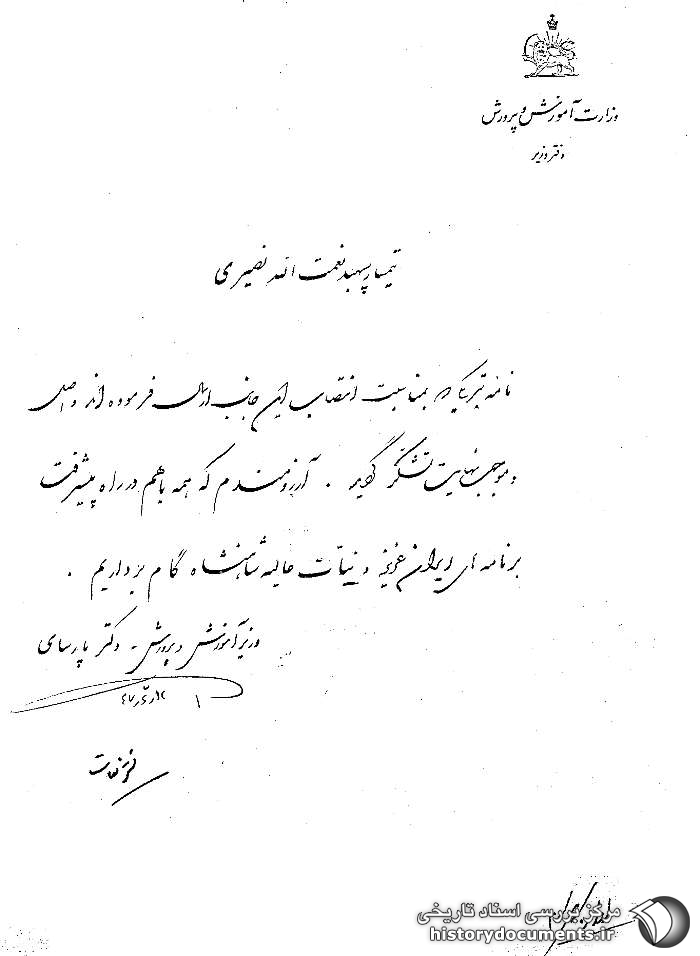 وزارت آموزش و پرورش
دفتر وزیر
تیمسار سپهبد نعمت الله نصیری
نامه تبریک که بمناسبت انتصاب این جانب ارسال فرموده اند واصل
و موجب نهایت تشکر گردید . آرزومندم که همه باهم در راه پیشرفت
برنامه های ایران عزیز و نیات عالیه شاهنشاه گام برداریم .
وزیر آموزش و پرورش - دکتر پارسای
مرکز بررسی اسناد تاریخی
historydocuments.ir